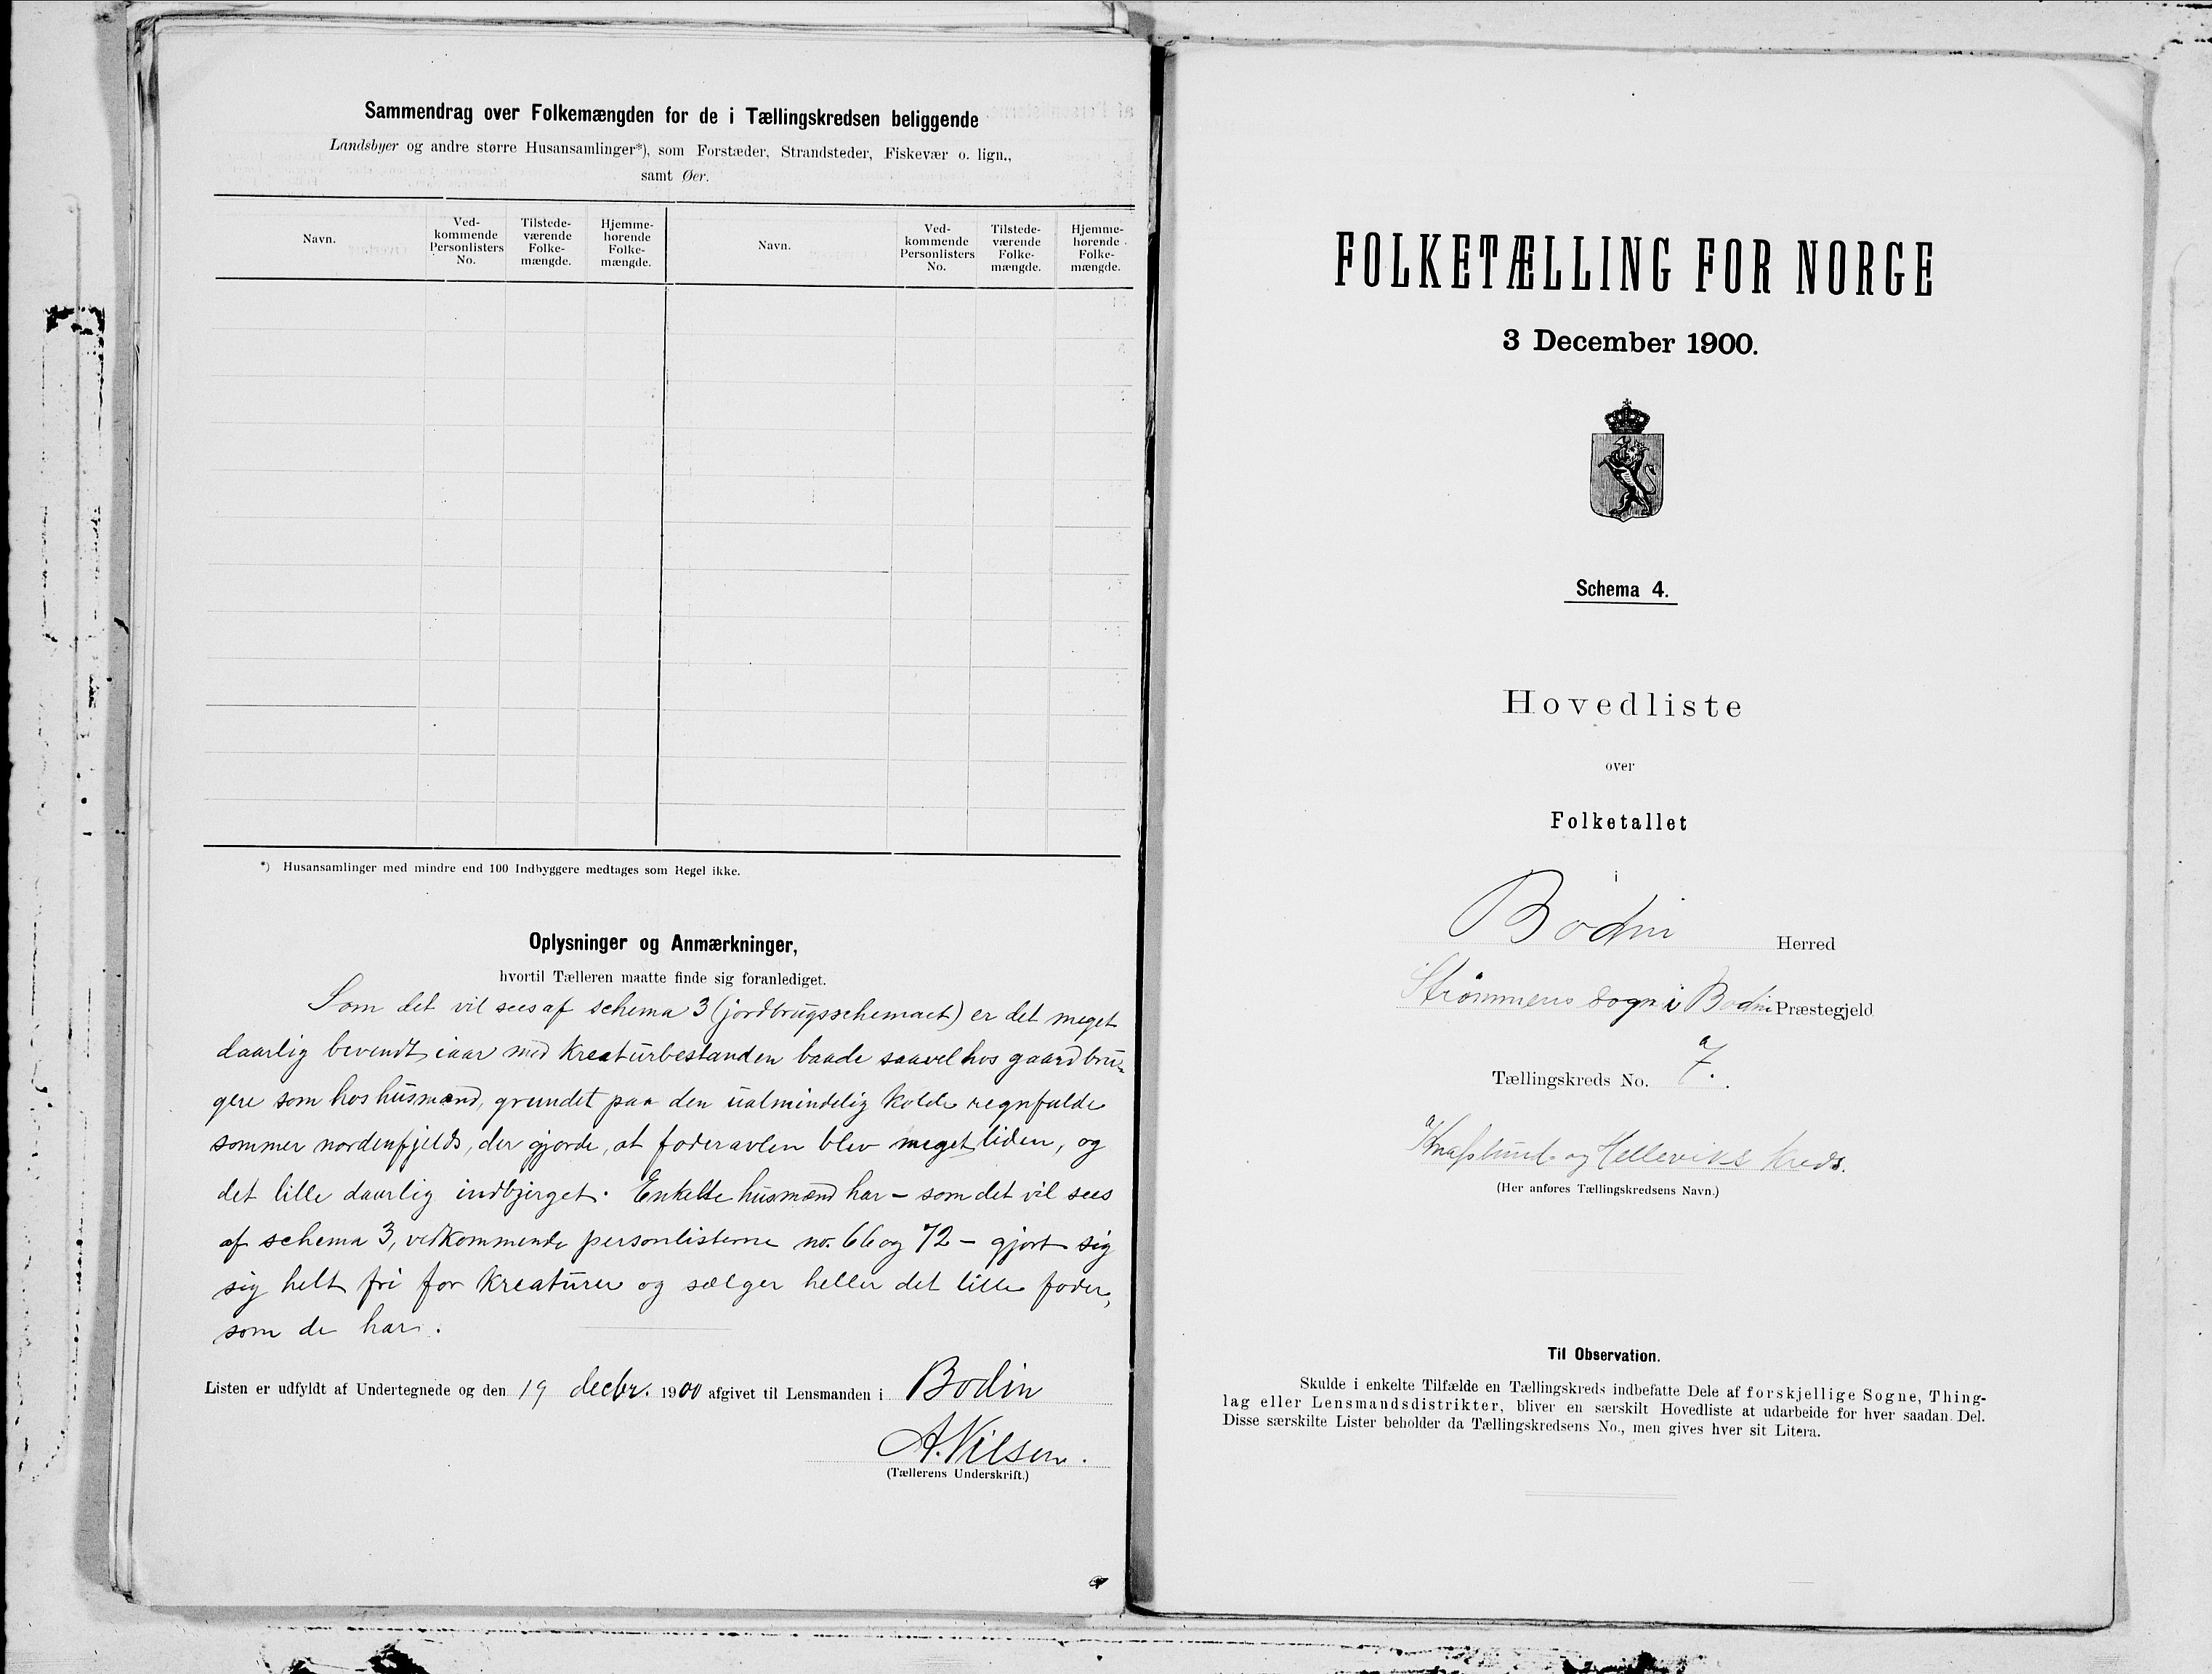 Sammendrag over Folkemængden for de i Tællingskredsen beliggende
Landsbyer og andre større Husansamlinger*), som Forstæder, Strandsteder, Fiskevær o. lign.,
samt Øer.
Navn.
Ved-
kommende
Personlisters
No.
Tilstede-
værende
Folke-
mængde.
Hjemme-
hørende
Folke-
mængde.
Navn.
Ved-
kommende
Personlisters
No.
Tilstede-
værende
Folke-
mængde.
Hjemme-
hørende
Folke-
mængde.
*) Husansamlinger med mindre end 100 Indbyggere medtages som Regel ikke.
Oplysninger og Anmærkninger,
hvortil Tælleren maatte finde sig foranlediget.
Som det vil sees af schema 3 (jordbrugsschemaet) er det meget
daarlig bevendt iaar med kreaturbestanden baade saavel hos gaardbru-
gere som hos husmænd, grundet paa den ualmindelig kolde regnfulde
sommer nordenfjelds, der gjorde, at foderavlen blev meget liden, og
det lille daarlig indbjerget. Enkelte husmænd har – som det vil sees
af schema 3, vedkommende personlisterne no. 66 og 72 – gjort sig
sig helt fri for kreaturer og sælger heller det lille foder,
som de har.
Listen er udfyldt af Undertegnede og den 19 decbr. 1900 afgivet til Lensmanden i Bodin
A. Nilsen.
(Tællerens Underskrift.)
FOLKETÆLLING FOR NORGE
3 December 1900.
Schema 4.
Hovedliste
over
Folketallet
i
Bodin Herred
Strømmens sogn i Bodin Præstegjeld
Tællingskreds No. 7.
og Helleviks kreds.
(Her anføres Tællingskredsens Navn.)
Til Observation.
Skulde i enkelte Tilfælde en Tællingskreds indbefatte Dele af forskjellige Sogne, Thing-
lag eller Lensmandsdistrikter, bliver en særskilt Hovedliste at udarbeide for hver saadan Del.
Disse særskilte Lister beholder da Tællingskredsens No., men gives hver sit Litera.